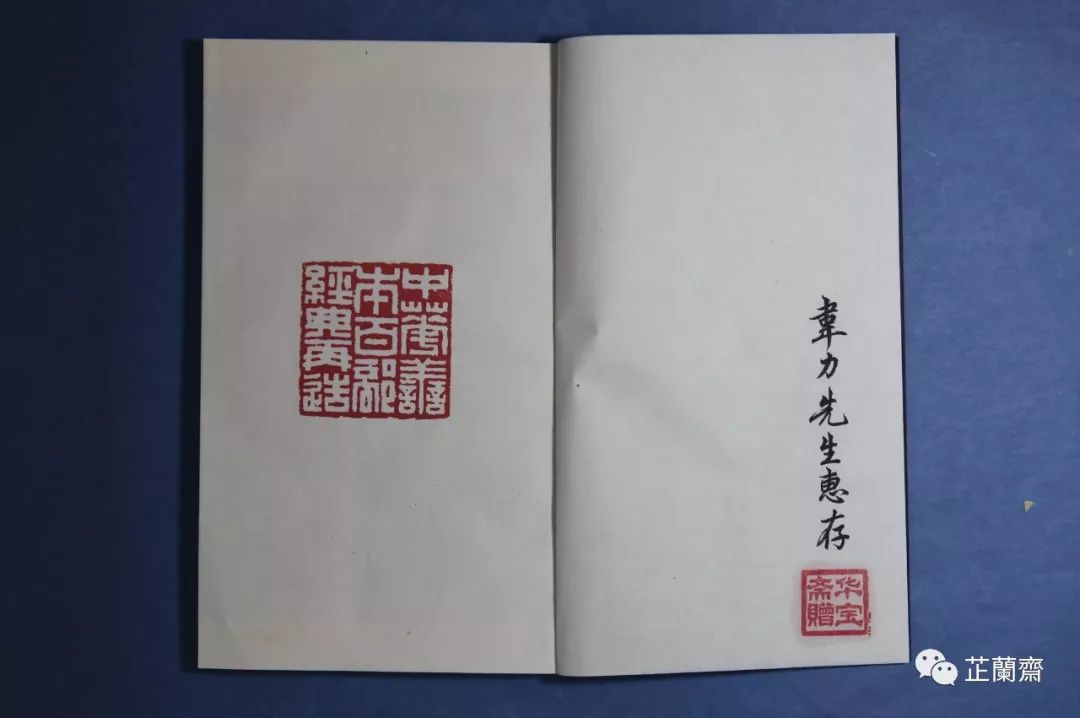 韋力先生惠存
华宝
斋贈
中華善
本百部
經典再造
芷蘭齋